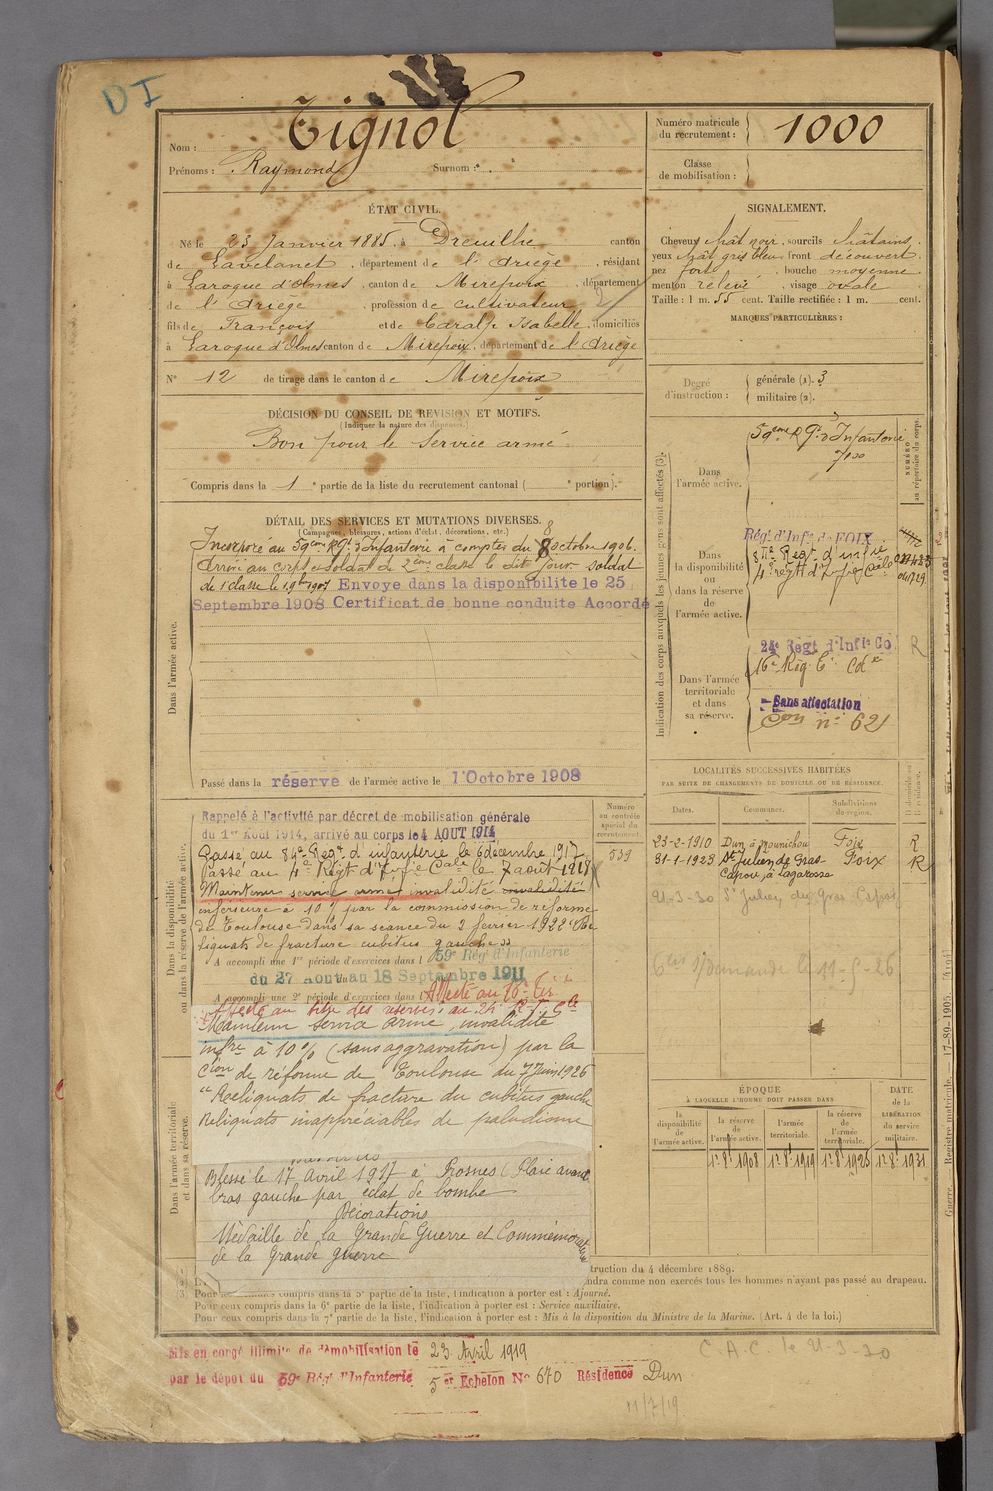 DI
Nom : Tignol
Prénoms : Raymond Surnom :
Numéro matricule du recrutement : 1000
Classe de mobilisation :
ÉTAT CIVIL.
Né le 23 Janvier 1885, à Dreuilhe canton
de Lavelanet, département de l'Ariège, résidant
à Laroque d'Olmes, canton de Mirepoix, département
de l'Ariège, profession de cultivateur
fils de François et de Caralp Isabelle, domiciliés
à Laroque d'Olmes canton de Mirepoix, département de l'Ariège
N° 12 de tirage dans le canton de Mirepoix
SIGNALEMENT.
Cheveux chât noir, sourcils châtains
yeux chât gris bleu, front découvert
nez fort, bouche moyenne
menton relevé, visage ovale
Taille : 1 m. 55 cent. Taille rectifiée : 1 m. cent.
MARQUES PARTICULIÈRES :
DÉCISION DU CONSEIL DE REVISION ET MOTIFS.
(Indiquer la nature des dispenses.)
Bon pour le service armé
Compris dans la 1e partie de la liste du recrutement cantonal ( e portion).
Degré d'instruction :
générale (1). 3
militaire (2).
DÉTAIL DES SERVICES ET MUTATIONS DIVERSES.
(Campagnes, blessures, actions d'éclat, décorations, etc.)
Incorporé au 59eme Rgt d'Infanterie à compter du 8 octobre 1906.
Arrivé au corps et soldat de 2eme classe le dit jour. soldat
de 1 classe le 1 9bre 1907 Envoye dans la disponibilite le 25
Septembre 1908 Certificat de bonne conduite Accordé
Dans l'armée active.
Passé dans la réserve de l'armée active le 1 Octobre 1908
Indication des corps auxquels les jeunes gens sont affectés (3).
NUMÉRO au répertoire du corps.
Dans l'armée active.
59eme Rgt d'Infanterie
Dans la disponibilité ou dans la réserve de l'armée active.
Régt d'Infie de FOIX
4e régtt d'Infie Cale
Dans l'armée territoriale et dans sa réserve.
24e Regt d'Infie Co R
16e Rég
Sans affectation
n° 62
Dans la disponibilité ou dans la réserve de l'armée active.
Numéro au contrôle spécial du recrutement.
539
Rappelé à l'activité par décret de mobilisation générale
du 1er Août 1914, arrivé au corps le 4 AOUT 1914
Passé au 84e Regt d'infanterie le 6 décembre 1917
Passé au 4e Régt d'Infie Cale le 7 août 1918
Maintenu service armé invalidité invalidité
inférieure à 10% par la commission de réforme
de Toulouse dans sa seance du 2 fevrier 1922 "Re
liquats de fracture cubitus gauche"
A accompli une 1re période d'exercices dans l 59e Rég' d'Infanterie
du 27 Aout au 18 Septembre 1911
A accompli une 2e période d'exercices dans l Affecté au 16e
Affecté au titre des réserves au 24e R.I.Cle
Maintenu service armé, invalidité
infre à 10% (sans aggravation) par la
Cion de réforme de Toulouse du 7 Juin 1926
"Reliquats de fracture du cubitus gauche
Reliquats inappréciables de paludisme
Dans l'armée territoriale et dans sa réserve.
Blessé le 17 Avril 1917 à Prosnes (Plaie avant
bras gauche par éclat de bombe
Décorations
Médaille de la Grande Guerre et Commémorative
de la Grande guerre
LOCALITÉS SUCCESSIVES HABITÉES
PAR SUITE DE CHANGEMENTS DE DOMICILE OU DE RÉSIDENCE.
Dates. Communes. Subdivisions de région. D domicile ou R résidence.
23-2-1910 Dun, à Mounichou Foix R
31-1-1923 St Julien de Gras Capou, à Lagarosse Foix R
21-3-30 St Julien de Gras Capou
ÉPOQUE
À LAQUELLE L'HOMME DOIT PASSER DANS
la disponibilité de l'armée active.
la réserve de l'armée active.
l'armée territoriale.
la réserve de l'armée territoriale.
DATE de la LIBÉRATION du service militaire.
1er 8bre 1908 1er 8bre 1919 1er 8bre 1925 1er 8bre 1931
truction du 4 décembre 1889.
ndra comme non exercés tous les hommes n'ayant pas passé au drapeau.
(3) Pour compris dans la 5e partie de la liste, l'indication à porter est : Ajourné.
Pour ceux compris dans la 6e partie de la liste, l'indication à porter est : Service auxiliaire.
Pour ceux compris dans la 7e partie de la liste, l'indication à porter est : Mis à la disposition du Ministre de la Marine. (Art. 4 de la loi.)
Guerre. — Registre matricule. — 17-89-1905.
Mis en congé illimité de démobilisation le 23 Avril 1919
par le dépôt du 59e Rég' d'Infanterie 5er Echelon N° 670 Résidence Dun
C.A.C. le 21-3-30
11/7/19